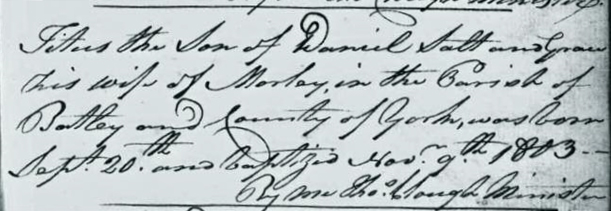 Titus the Son of Daniel Salt and Grace
his wife of Morley, in the Parish of
Batley and County of York, was born
Sept. 20.th and baptized Nov.r 9.th 1803
By me Tho.s Clough Minister